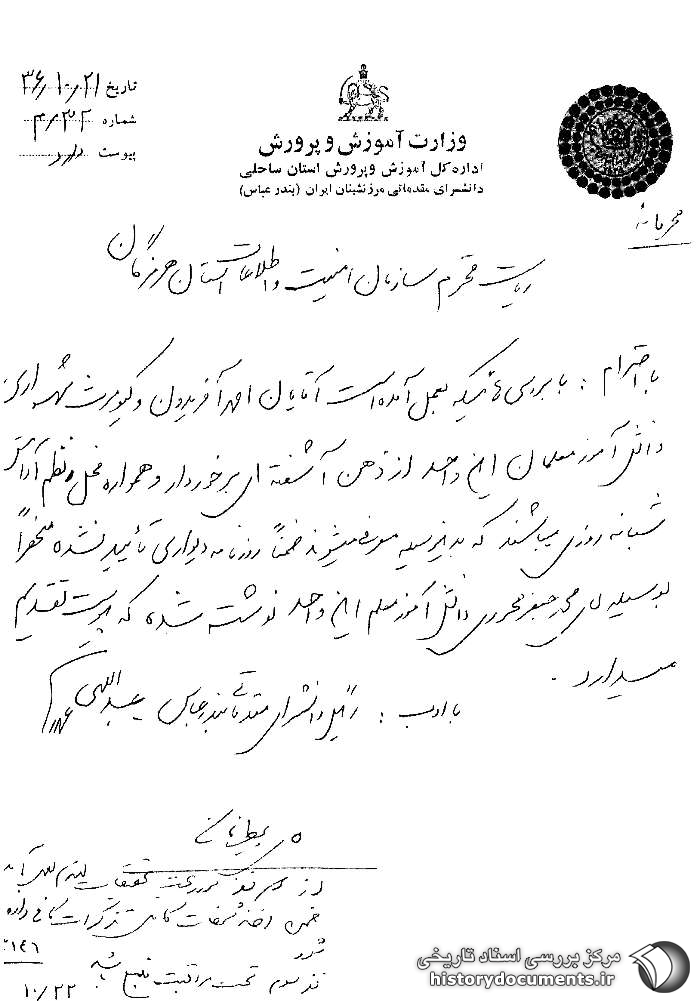 تاریخ ۳۶/۱۰/۲۱
شماره ۴۰۳۲
پیوست دارد
وزارت آموزش و پرورش
اداره کل آموزش و پرورش استان ساحلی
دانشسرای مقدماتی مرزنشینان ایران (بندر عباس)
محرمانه
ریاست محترم سازمان امنیت و اطلاعات استان هرمزگان
با احترام : با بررسی هائیکه بعمل آمده است آقایان احمد آفریدون و کیومرث شهسواری
دانش آموز معلمان این واحد از ذهن آشفته ای برخوردار و همواره مخل نظم آرامش
شبانه روزی میباشند که بدینوسیله معرفی میشوند ضمناً روزنامه دیواری تأیید نشده منحصراً
بوسیله آقای محمد جعفر محرری دانش آموز معلم این واحد نوشته شده که به پیوست تقدیم
میدارد .
با ادب : رئیس دانشسرای مقدماتی بندرعباس عبداللهی
از هر سه نفر تحقیقات لازم بعمل آید
ضمن اخذ مشخصات کامل تذکرات کافی داده
شود
نفر سوم تحت مراقبت باشد
۱۰/۲۲
مرکز بررسی اسناد تاریخی
historydocuments.ir